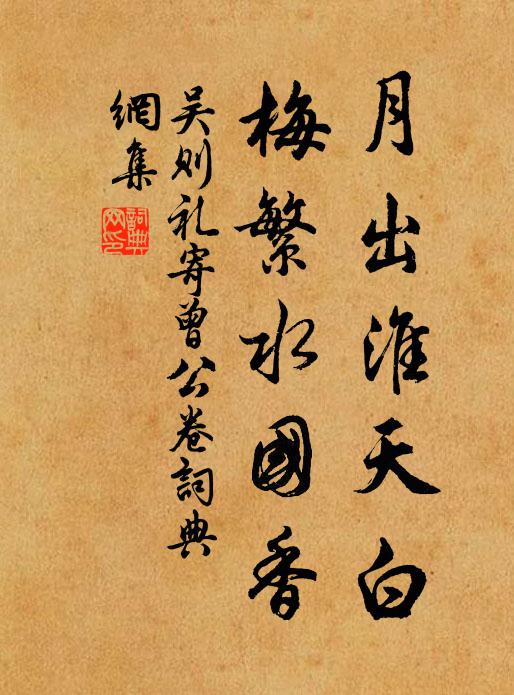 月出淮天白
梅繁水國香
吴则礼寄曾公卷詞典
網集
詞典網印